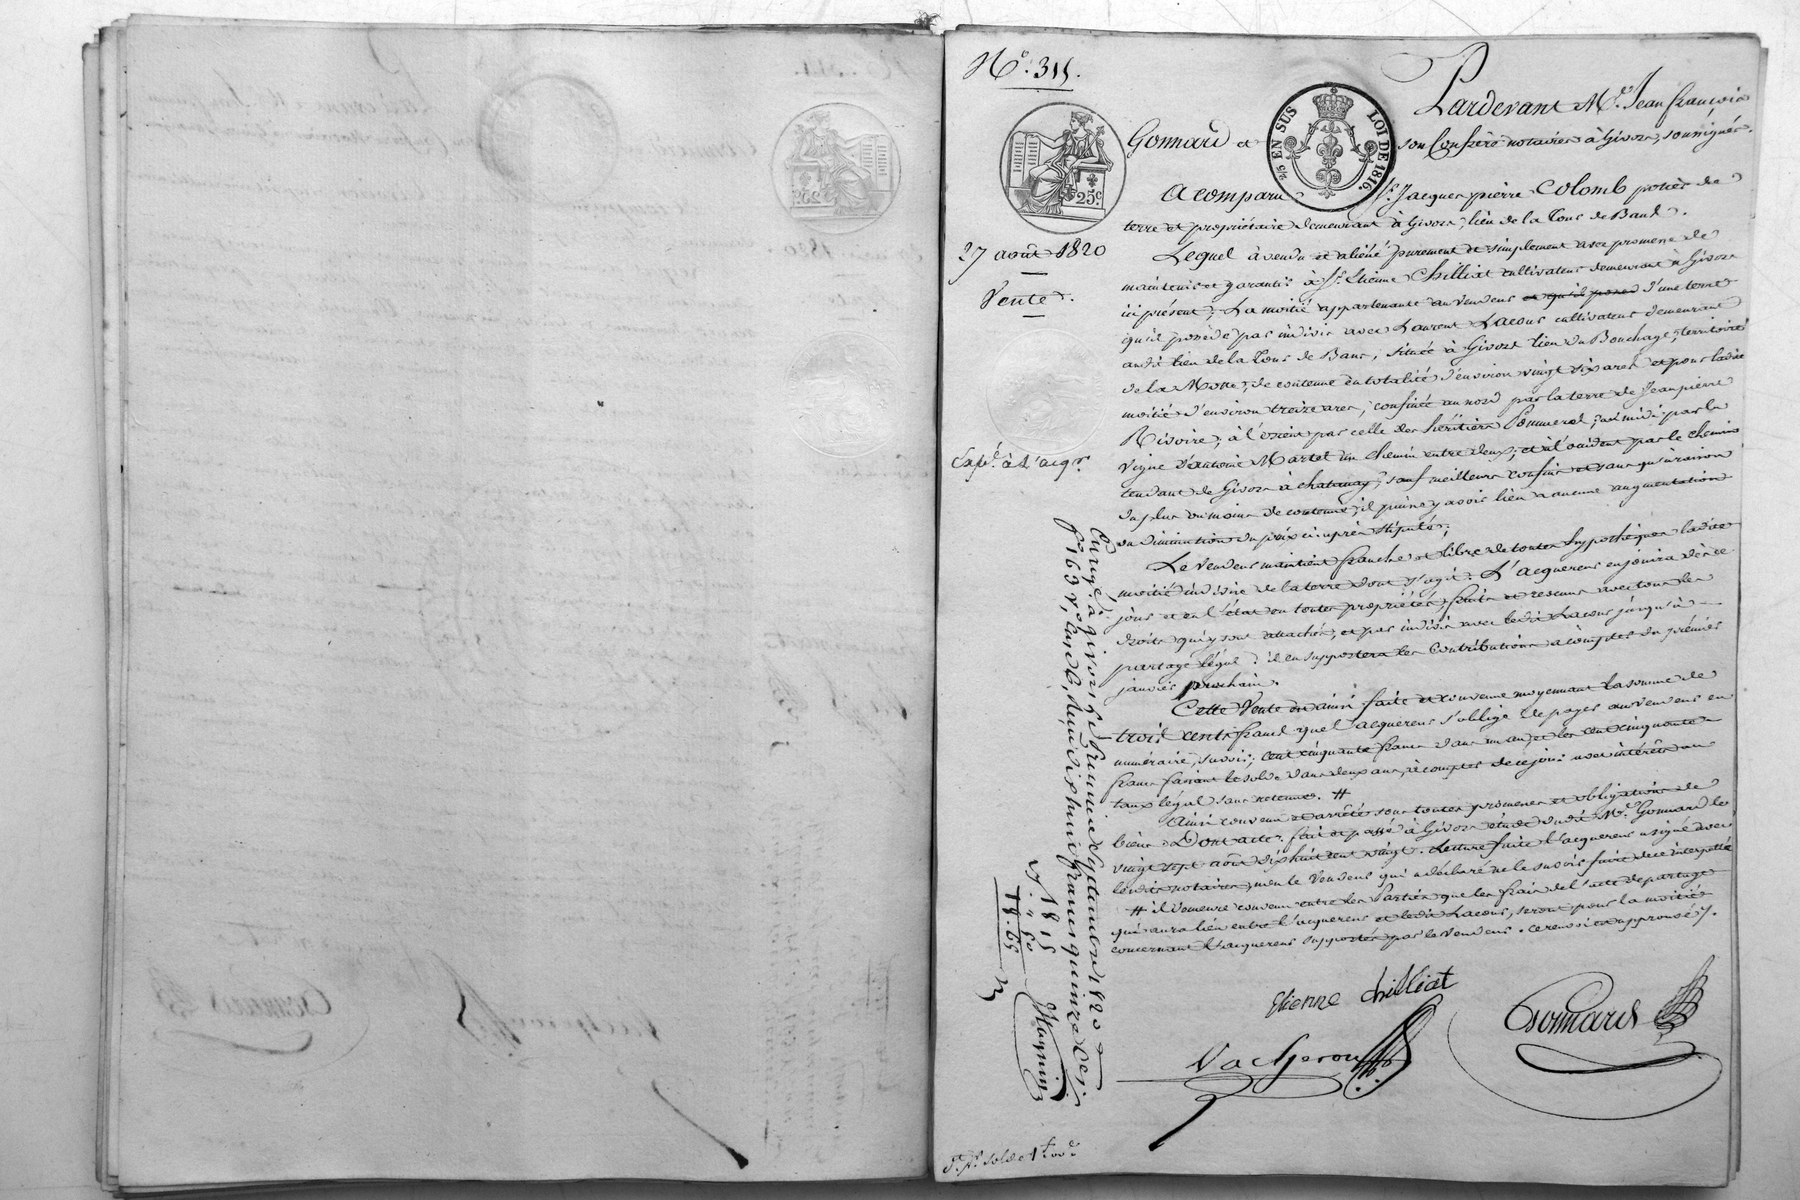 N.° 315.
Pardevant M.e Jean françois
Gonnard et son Confrère notaires à Givors, soussignés.
2/5 EN SUS LOI DE 1816.
25c
a comparu S.r Jacques pierre Colomb potier de
terre et propriétaire demeurant à Givors, lieu de la Tour de Band.
27 août 1820
Vente.
Lequel à vendu et aliéné purement et simplement avec promesse de
maintenir et garantir à S.r Etienne Chilliat cultivateur demeurant à Givors
ici présent; La moitié appartenante au vendeur et qu'il possède d'une terre
qu'il possède par indivis avec Laurent Lacour cultivateur demeurant
audit lieu de la Tour de Banc, située à Givors lieu du Bouchage, territoire
de la Motte, de contenue en totalité d'environ vingt six ares et pour ladite
moitié d'environ treize ares; confinée au nord par la terre de Jean pierre
Rivoire; à l'orient par celle des héritiers Pommerol; au midi par la
Exp.é à l'acq.r
vigne d'antoine Martel un chemin entre deux, et à l'occident par le chemin
tendant de Givors à chatanay, sauf meilleurs confins et sans qu'à raison
du plus ou moins de contenue, il puisse y avoir lieu à aucune augmentation
ou diminution du prix ci après stipulé;
Le vendeur maintient franche et libre de toutes hypothèques ladite
moitié indivise de la terre dont s'agit. L'acquereur en jouira dès ce
jour et en l'état en toutes propriétés, fruits et revenus avec tous les
droits qui y sont attachés, et par indivis avec ledit Lacour jusqu'à
partage légal: il en supportera les contributions à compter du premier
janvier prochain.
Cette vente est ainsi faite et convenue moyennant la somme de
trois cents francs que l'acquereur s'oblige de payer au vendeur en
numéraire, savoir; cent cinquante francs dans un an, et les cent cinquante
francs faisant le solde dans deux ans, à compter de ce jour avec intérêts au
taux légal sans retenue. #
Ainsi convenu et arrêté sous toutes promesses et obligations de
biens. Dont acte. fait et passé à Givors étude dudit M.e Gonnard le
vingt sept août dix huit cent vingt. Lecture faite l'acquereur a signé avec
lesdits notaires, non le vendeur qui a déclaré ne le savoir faire de ce interpellé
# il demeure convenu entre les Parties que les frais de l'acte de partage
qui aura lieu entre l'acquereur et ledit Lacour, seront pour la moitié
concernant l'acquereur supportés par le vendeur. ce renvoi ici approuvé.
Enregé. à givors, le premier Septembre 1820
f.° 163 v.°, Case 6, reçu dix huit francs quinze C.es
18 15
1 80
Magnin
Etienne chilliat
Vacheron
Gonnard